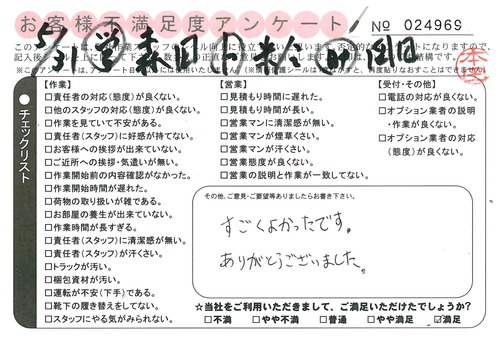 お客様不満足度アンケート
No 024969
チェックリスト
【作業】
□責任者の対応(態度)が良くない。
□他のスタッフの対応(態度)が良くない。
□作業を見ていて不安がある。
□責任者(スタッフ)に好感が持てない。
□お客様への挨拶が出来ていない。
□ご近所への挨拶・気遣いが無い。
□作業開始前の内容確認がなかった。
□作業開始時間が遅れた。
□荷物の取り扱いが雑である。
□お部屋の養生が出来ていない。
□作業時間が長すぎる。
□責任者(スタッフ)に清潔感が無い。
□責任者(スタッフ)が汗くさい。
□トラックが汚い。
□梱包資材が汚い。
□運転が不安(下手)である。
□靴下の履き替えをしてない。
□スタッフにやる気がみられない。
【営業】
□見積もり時間に遅れた。
□見積もり時間が長い。
□営業マンに清潔感が無い。
□営業マンが煙草くさい。
□営業マンが汗くさい。
□営業態度が良くない。
□営業の説明と作業が一致してない。
【受付・その他】
□電話の対応が良くない。
□オプション業者の説明
・作業が良くない。
□オプション業者の対応
(態度)が良くない。
その他、ご意見・ご要望等ありましたらお書き下さい。
すごくよかったです。
ありがとうございました。
☆当社をご利用いただきまして、ご満足いただけたでしょうか?
□不満 □やや不満 □普通 □やや満足 ☑満足